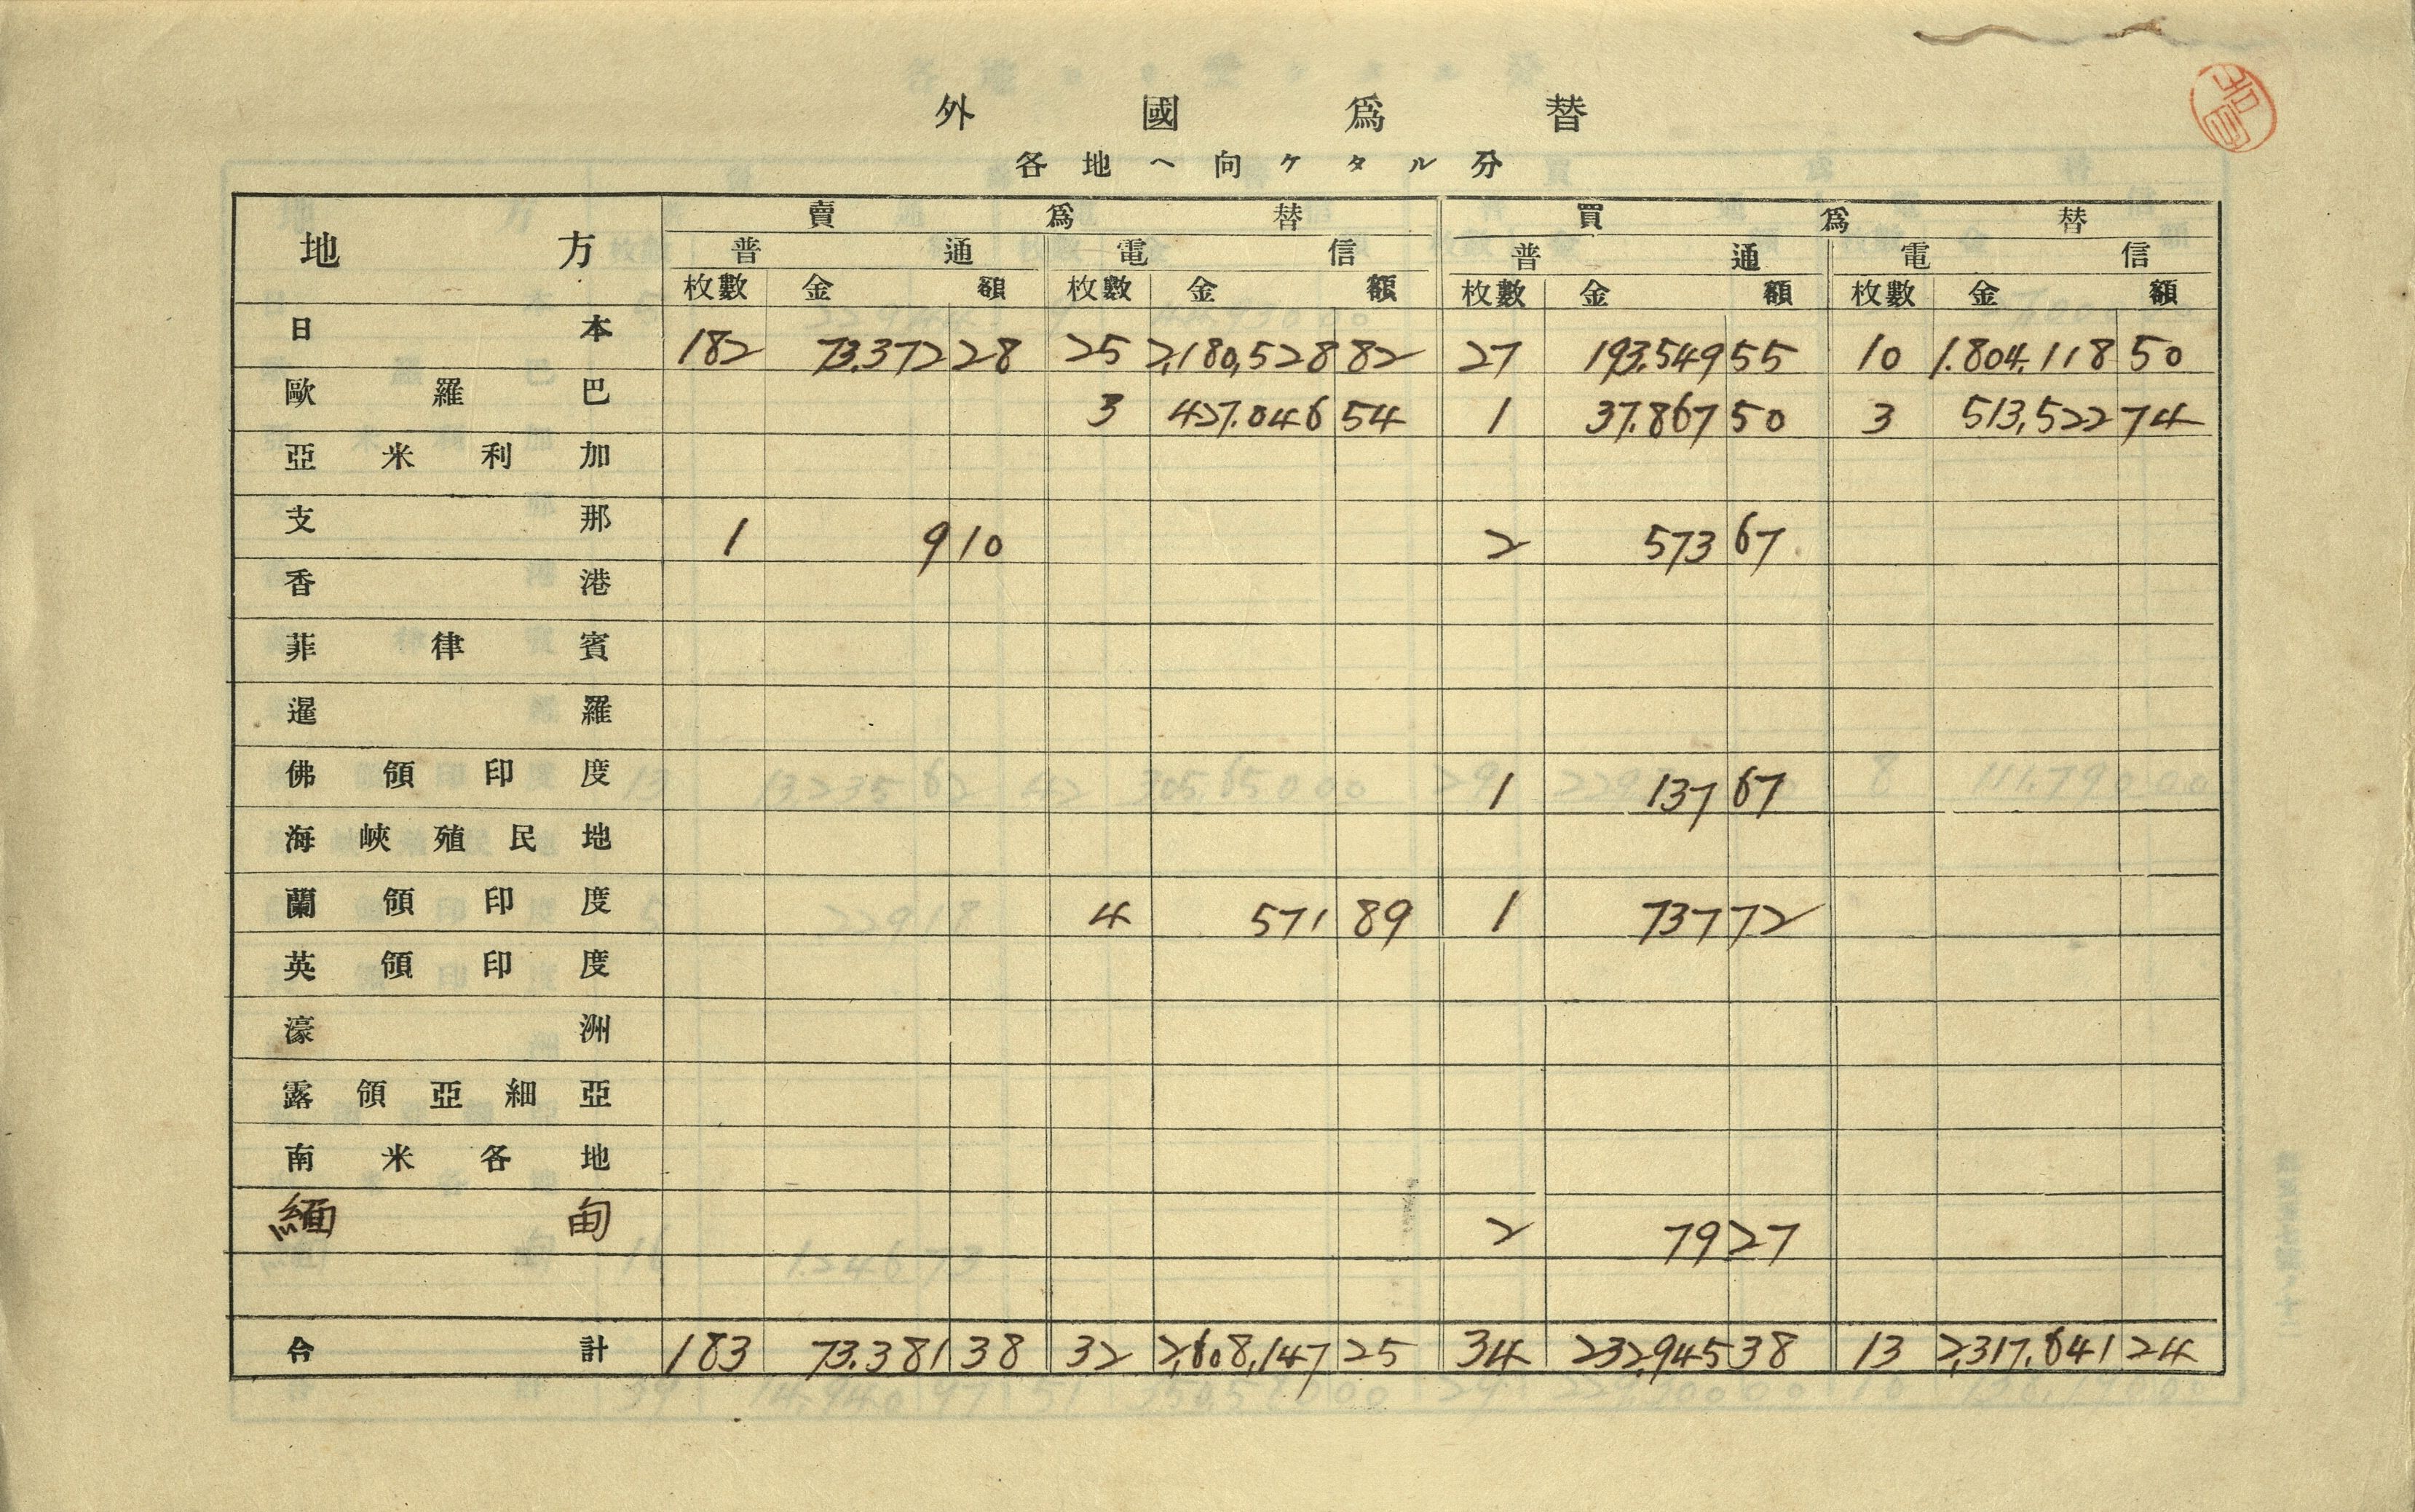 外國爲替
各地ヘ向ケタル分
地方 賣爲替 買爲替
普通 電信 普通 電信
枚數 金額 枚數 金額 枚數 金額 枚數 金額
日本 182 73.372 28 25 2,180,528 82 27 193.549 55 10 1.804.118 50
歐羅巴 3 427.046 54 1 37.867 50 3 513,522 74
亞米利加
支那 1 9 10 2 573 67
香港
菲律賓
暹羅
佛領印度 1 137 67
海峽殖民地
蘭領印度 4 571 89 1 737 72
英領印度
濠洲
露領亞細亞
南米各地
緬甸 2 79 27
合計 183 73.381 38 32 2,608,147 25 34 232,945 38 13 2,317.641 24